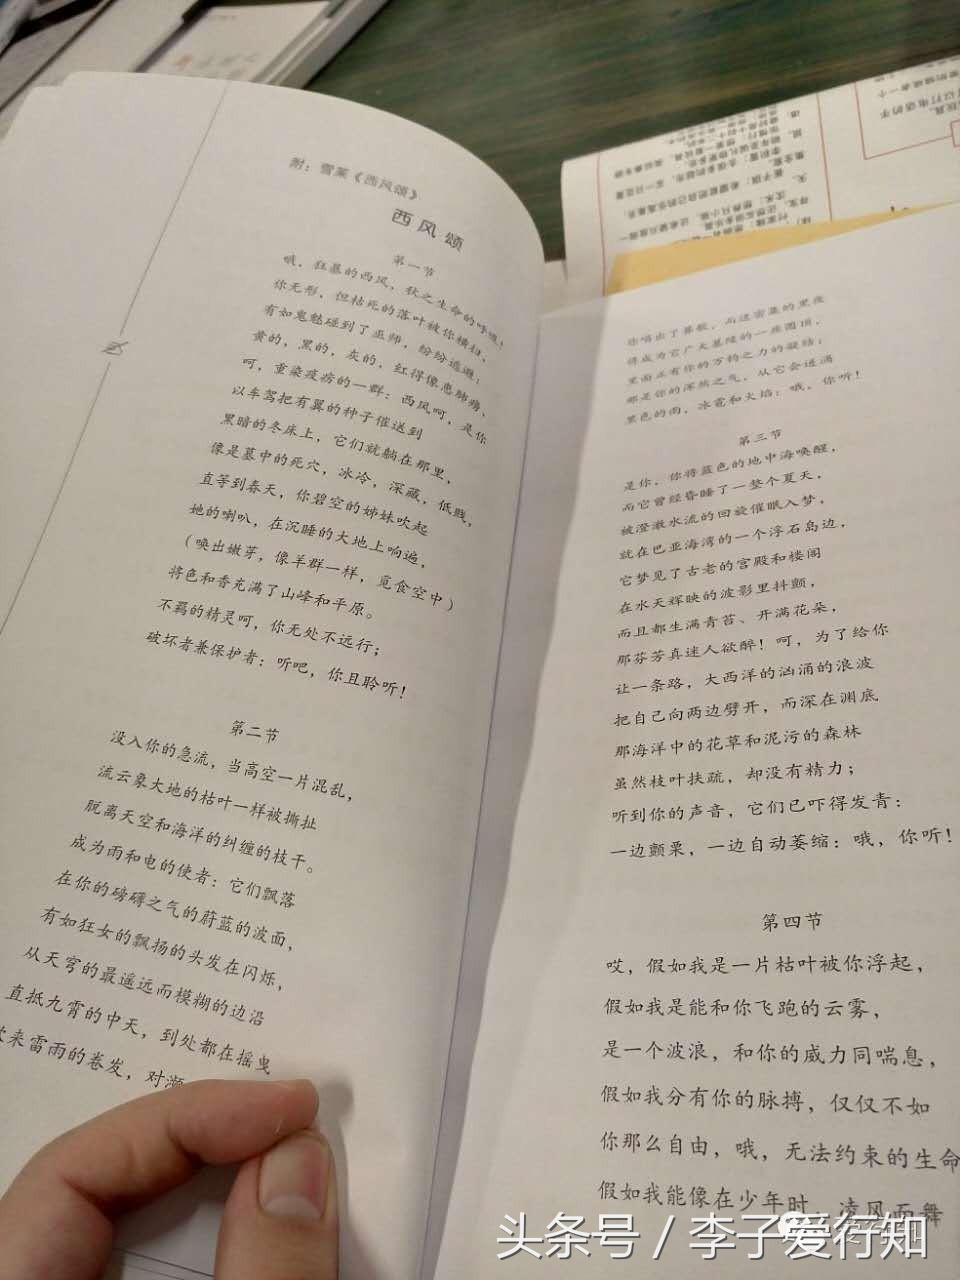 附：雪莱《西风颂》
西风颂
第一节
哦，狂暴的西风，秋之生命的呼吸！
你无形，但枯死的落叶被你横扫，
有如鬼魅碰到了巫师，纷纷逃避：
黄的，黑的，灰的，红得像患肺痨，
呵，重染疫疠的一群：西风呵，是你
以车驾把有翼的种子催送到
黑暗的冬床上，它们就躺在那里，
像是墓中的死穴，冰冷，深藏，低贱，
直等到春天，你碧空的姊妹吹起
她的喇叭，在沉睡的大地上响遍，
（唤出嫩芽，像羊群一样，觅食空中）
将色和香充满了山峰和平原。
不羁的精灵呵，你无处不远行；
破坏者兼保护者：听吧，你且聆听！
第二节
没入你的急流，当高空一片混乱，
流云象大地的枯叶一样被撕扯
脱离天空和海洋的纠缠的枝干。
成为雨和电的使者：它们飘落
在你的磅礴之气的蔚蓝的波面，
有如狂女的飘扬的头发在闪烁，
从天穹的最遥远而模糊的边沿
直抵九霄的中天，到处都在摇曳
来雷雨的卷发，对濒
你唱出了葬歌，而这密集的黑夜
将成为它广大墓陵的一座圆顶，
里面正有你的万钧之力的凝结；
那是你的浑然之气，从它会迸涌
黑色的雨，冰雹和火焰：哦，你听！
第三节
是你，你将蓝色的地中海唤醒，
而它曾经昏睡了一整个夏天，
被澄澈水流的回旋催眠入梦，
就在巴亚海湾的一个浮石岛边，
它梦见了古老的宫殿和楼阁
在水天辉映的波影里抖颤，
而且都生满青苔、开满花朵，
那芬芳真迷人欲醉！呵，为了给你
让一条路，大西洋的汹涌的浪波
把自己向两边劈开，而深在渊底
那海洋中的花草和泥污的森林
虽然枝叶扶疏，却没有精力；
听到你的声音，它们已吓得发青：
一边颤栗，一边自动萎缩：哦，你听！
第四节
哎，假如我是一片枯叶被你浮起，
假如我是能和你飞跑的云雾，
是一个波浪，和你的威力同喘息，
假如我分有你的脉搏，仅仅不如
你那么自由，哦，无法约束的生命
假如我能像在少年时，凌风而舞
头条号 / 李子爱行知